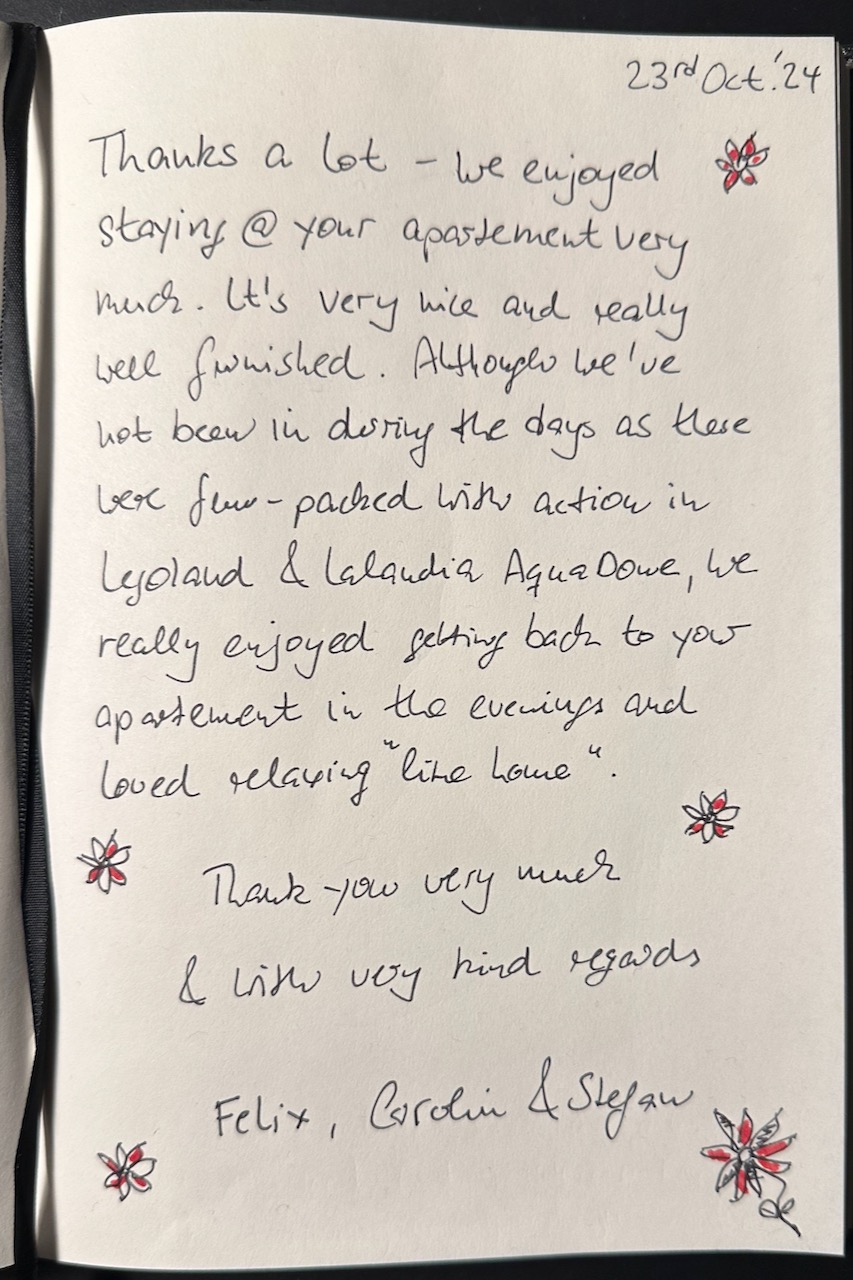 23rd Oct. '24
Thanks a lot - we enjoyed
staying @ your apartement very
much. It's very nice and really
well furnished. Although we've
not been in during the days as these
were fun-packed with action in
Legoland & Lalandia AquaDome, we
really enjoyed getting back to your
apartement in the evenings and
loved relaxing "like home".
Thank you very much
& with very kind regards
Felix, Carolin & Stefan